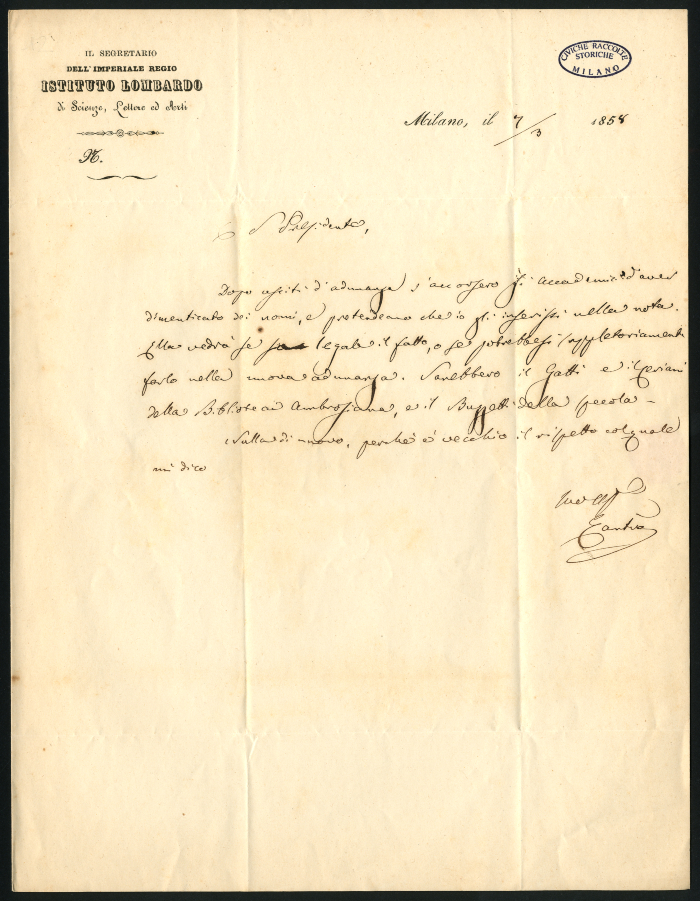 IL SEGRETARIO
DELL'IMPERIALE REGIO
ISTITUTO LOMBARDO
di Scienze, Lettere ed Arti
N.
CIVICHE RACCOLTE
STORICHE
MILANO
Milano, il 7/3 1858
Presidente,
Dopo usciti d'adunanza s'accorsero gli accademici d'aver
dimenticato dei nomi, e pretendeano che io gli inserissi nella nota.
Ella vedrà se legale il fatto, o se potrebbesi suppletoriamente
farlo nella nuova adunanza. Sarebbero il Gatti e il Ceriani
della Biblioteca Ambrosiana, e il Buzzetti della specola -
Nulla di nuovo, perché è vecchio il rispetto col quale
mi dico
Cantù